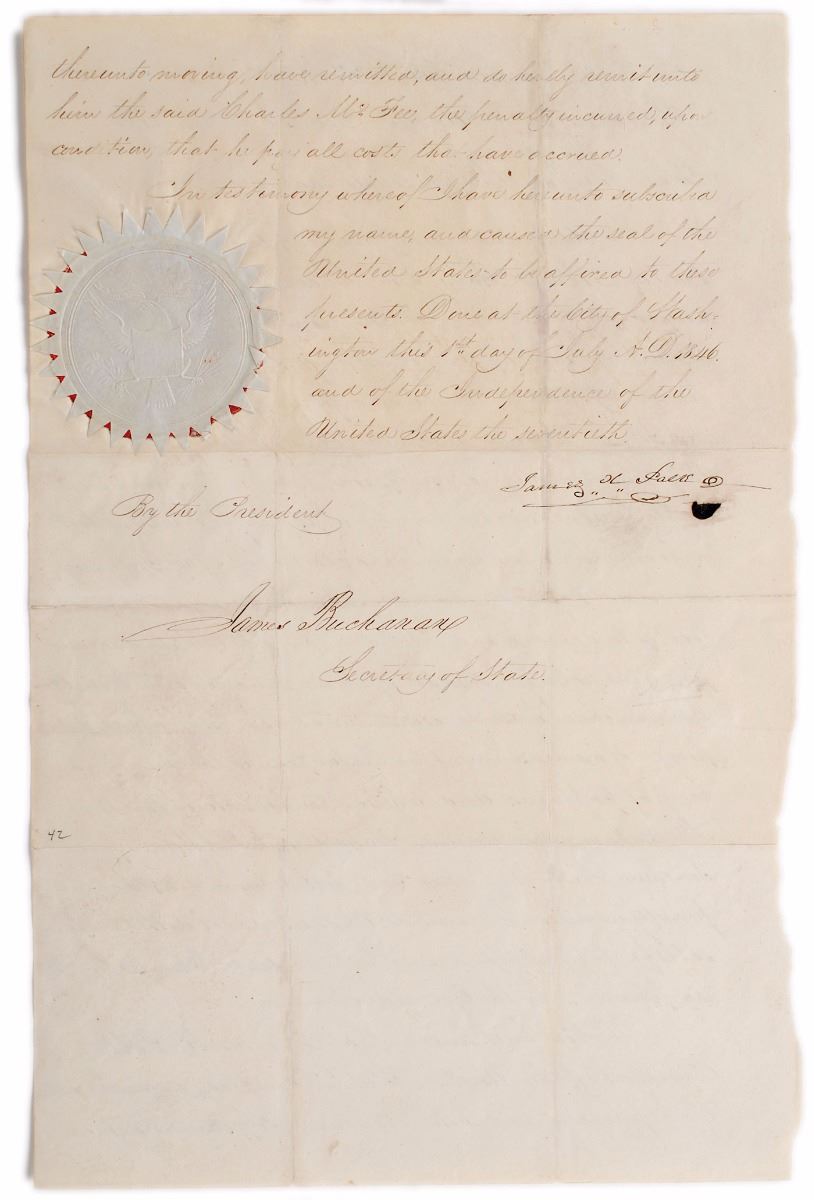 thereunto moving, have remitted, and do hereby remit unto
him the said Charles Mc Fee, the penalty incurred, upon
condition, that he pay all costs that have accrued.
In testimony whereof I have hereunto subscribed
my name, and caused the seal of the
United States to be affixed to these
presents. Done at the City of Wash-
ington this 1st day of July A. D. 1846.
and of the Independence of the
United States the seventieth.
James K Polk
By the President
James Buchanan
Secretary of State.
42